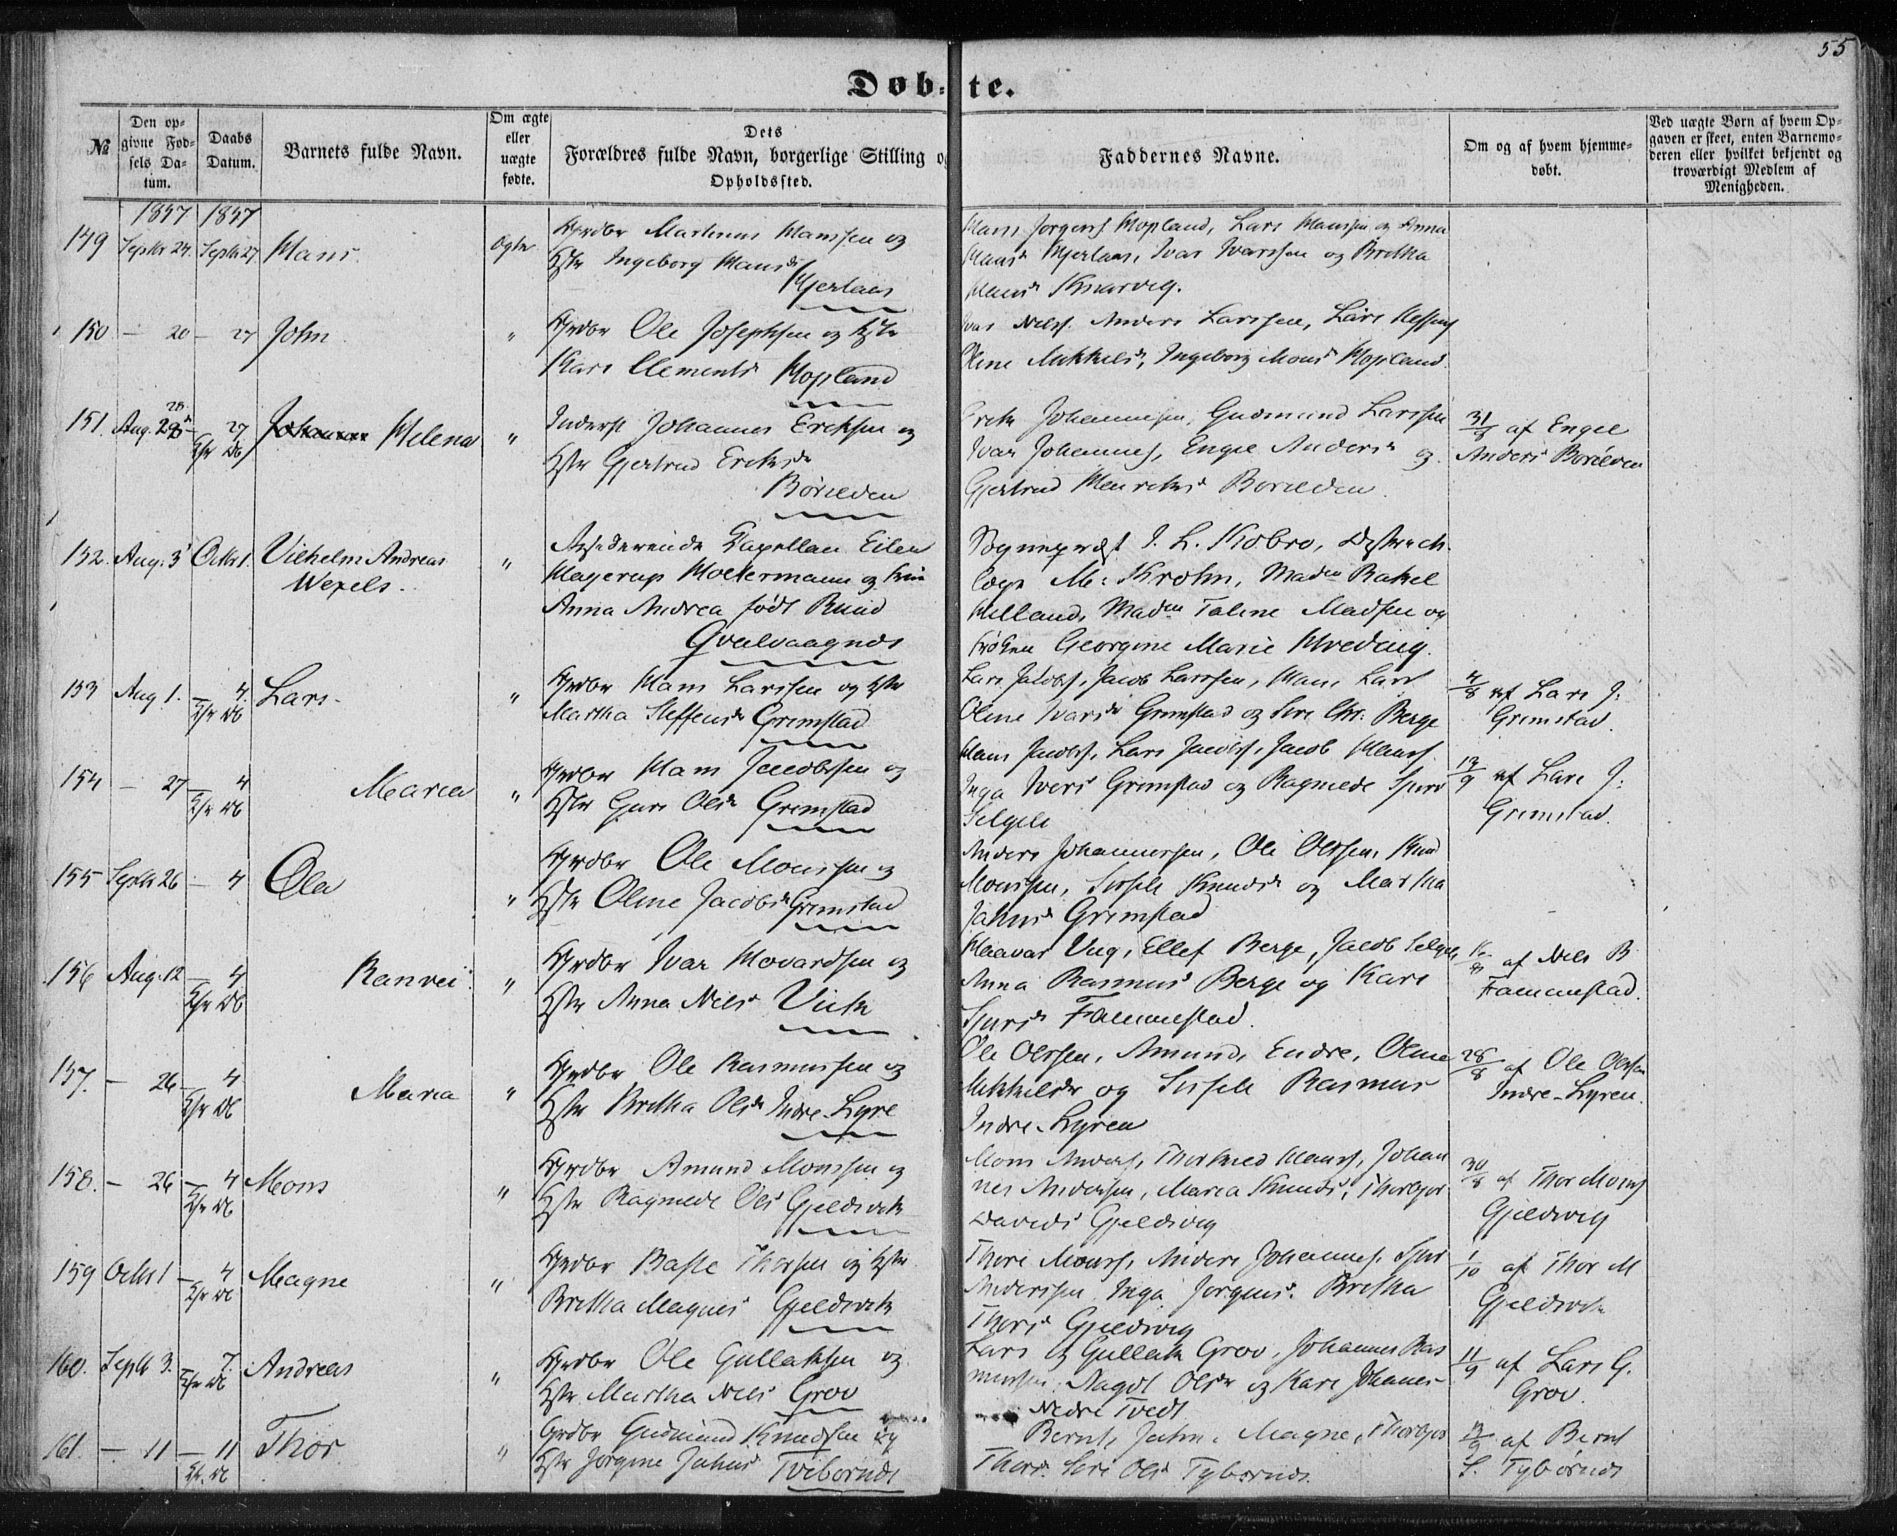 55
Døb-te.
№
Den op-
givne Fød-
sels Da-
tum.
Daabs
Datum.
Barnets fulde Navn.
Om ægte
eller
uægte
fødte.
Dets
Forældres fulde Navn, borgerlige Stilling og
Opholdssted.
Faddernes Navne.
Om og af hvem hjemme-
døbt.
Ved uægte Børn af hvem Op-
gaven er skeet, enten Barnemo-
deren eller hvilket bekjendt og
troværdigt Medlem af
Menigheden.
1857 1857
149 Septbr 24. Septbr 27 Hans Ægte Grdbr Martinus Hanssen og
Kstr Ingeborg Hansdr
Hjertaas
Hans Jørgens Hopland, Lars Hanssen og Anna
Hansdr Hjertaas, Ivar Ivarssen og Britha
Hansdr Knarvig.
150 — 20 — 27 John " Grdbr Ole Josephsen og Kstr
Kari Clements Hopland
Ivar Nilss. Anders Larssen, Lars
Mikkelsdr, Ingeborg Monsdr Hopland.
151. Aug. 28 — 27 Helena " Inderst Johannes Eriksen og
Kstr Gjertrud Eriksdr
Børilden
Erik Johannessen, Gudmund Larssen
Ivar Johanness, Engel Andersdr og
Gjertrud Henriksdr Borilden.
31/8 af Engel
Anders Borilden
152. Aug. 3 Octbr 1. Vilhelm Andreas
Wexels. " Residerende Kapellan Eiler
Hagerup Holtermann og
Anna Andrea født Ruud
Qvalvaagnes
Sognepræst J. L. Kobro, Distrikts-
læge M. Krohn, Madm Rakel
Helland, Madm Taline Madsen og
Frøken Georgine Marie Hveding.
153 Aug 1. — 4. Lars. " Grdbr Hans Larssen og Kstr
Martha Steffensdr Grimstad
Lars Jacobs, Jacob Larssen, Hans Lars
Oline Ivarsdr Grimstad og Siri Chr: Berge
4/8 af Lars J:
Grimstad.
154 — 27 — 4 Maria " Grdbr Hans Jacobssen og
Kstr Guri Olsdr Grimstad
Hans Jacobs, Lars Jacobs, Jacob Hanss.
Inga Ivers Grimstad og Ragnilde
13/9 af Lars J:
Grimstad.
155 Septbr 26 — 4 Ola " Grdbr Ole Monssen og
Kstr Oline Jacobsdr Grimstad
Anders Johannessen, Ole Olssen, Knud
Monssen, Sissele Knudsdr og Martha
Grimstad
156 Aug. 12 — 4 Ranvei " Grdbr Ivar Hovardsen og
Kstr Anna Nilsdr Vick
Haavar Ung, Ellef Berge, Jacob
Anna Rasmusdr Berge og Kari
Sjursdr Fammestad.
af Nils B
Fammestad.
157. — 26 — 4 Maria " Grdbr Ole Rasmussen og
Kstr Britha Olsdr Indre-Lyre
Ole Olssen, Amund, Endre, Oline
Mikkelsdr og Sissele Rasmus
Indre-Lyren
28/8 af Ole Olsen
Indre-Lyren.
158. — 26 — 4 Mons " Grdbr Amund Monssen og
Kstr Ragnilde Ols Gjeldvik
Mons Anders, Thorkild Hanss, Johan
nes Andersen, Maria Knuds, Thorbjør
Davids Gjeldvig
30/8 af Thor Mons
Gjeldvig
159 Octbr 1 — 4 Magne " Grdbr Baste Thorsen og Kstr
Britha Magnes Gjeldvik
Thore Mons, Anders Johannes, Sjur
Anderssen, Inga Jørgens. Britha
Thors Gjeldvig
1/10 af Thor M
Gjeldvik
160. Septbr 3. — 7. Andreas " Grdbr Ole Gullaksen og
Kstr Martha Nils Grov
Lars og Gullak Grov, Johannes Ras
mussen, Olsdr og Kari Johanes
Nedre Tvedt
11/9 af Lars G.
Grov.
161. — 11 — 11 Thor " Grdbr Gudmund Knudsen og
Kstr Jørgine Tvebornds
Bernt, John, Magne, Thorbjør
Thors. Siri Ols Tybornds.
af Bernt
S. Tybørnds